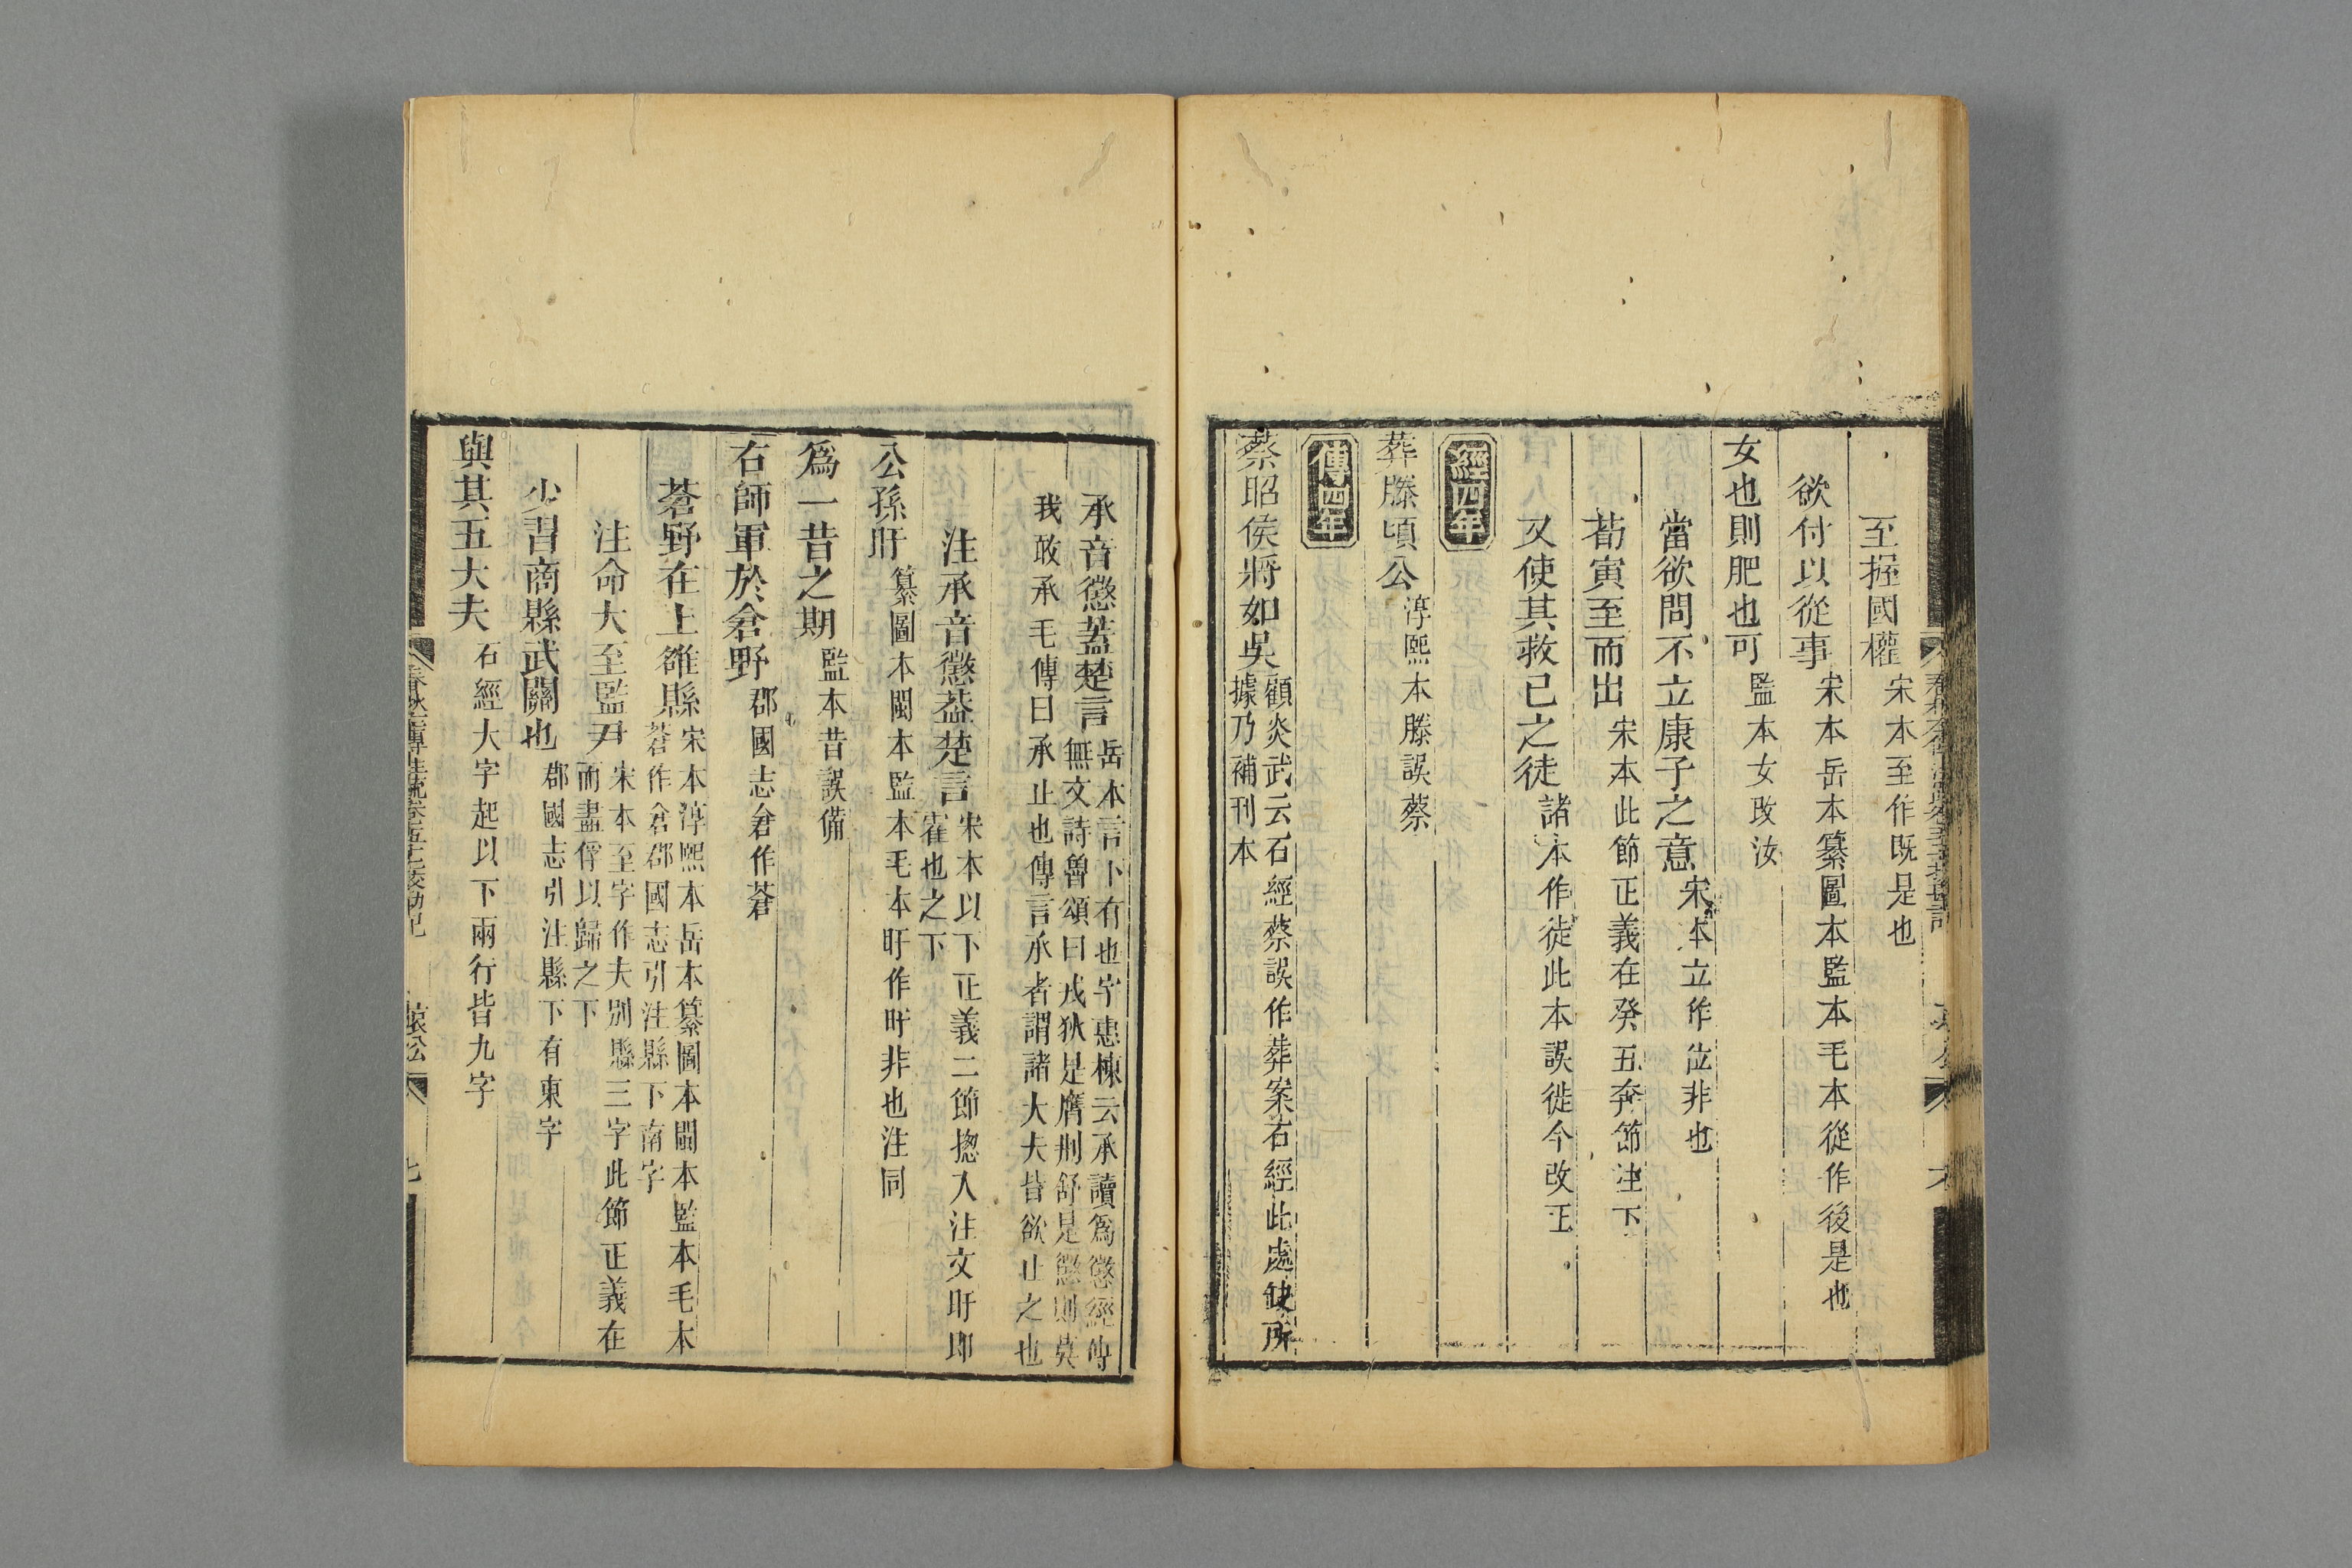 至握國權宋本至作既是也
欲付以從事宋本岳本纂圖本監本毛本從作後是也
女也則肥也可監本女改汝
當欲問不立康子之意宋本立作位非也
荀寅至而出宋本此節正義在癸丑奔節注下
又使其救已之徒諸本作徒此本誤徙今改正
經四年
葬滕頃公淳熙本滕誤蔡
傳四年
蔡昭侯將如吳顧炎武云石經蔡誤作葬案石經此處缺所
據乃補刊本
承音懲蓋楚言岳本言下有也字惠棟云承讀爲懲經傳
無文詩魯頌曰戎狄是膺荆舒是懲則莫
我敢承毛傳曰承止也傳言承者謂諸大夫皆欲止之也
注承音懲葢楚言宋本以下正義二節揔入注文盱卽
霍也之下
公孫盱纂圖本閩本監本毛本盱作旴非也注同
爲一昔之期監本昔誤備
右師軍於倉野郡國志倉作蒼
蒼野在上雒縣宋本淳熙本岳本纂圖本閩本監本毛本
蒼作倉郡國志引注縣下南字
注命大至監尹宋本至字作夫别縣三字此節正義在
而盡俘以歸之下
少習商縣武關也郡國志引注縣下有東字
與其五大夫石經大字起以下兩行皆九字